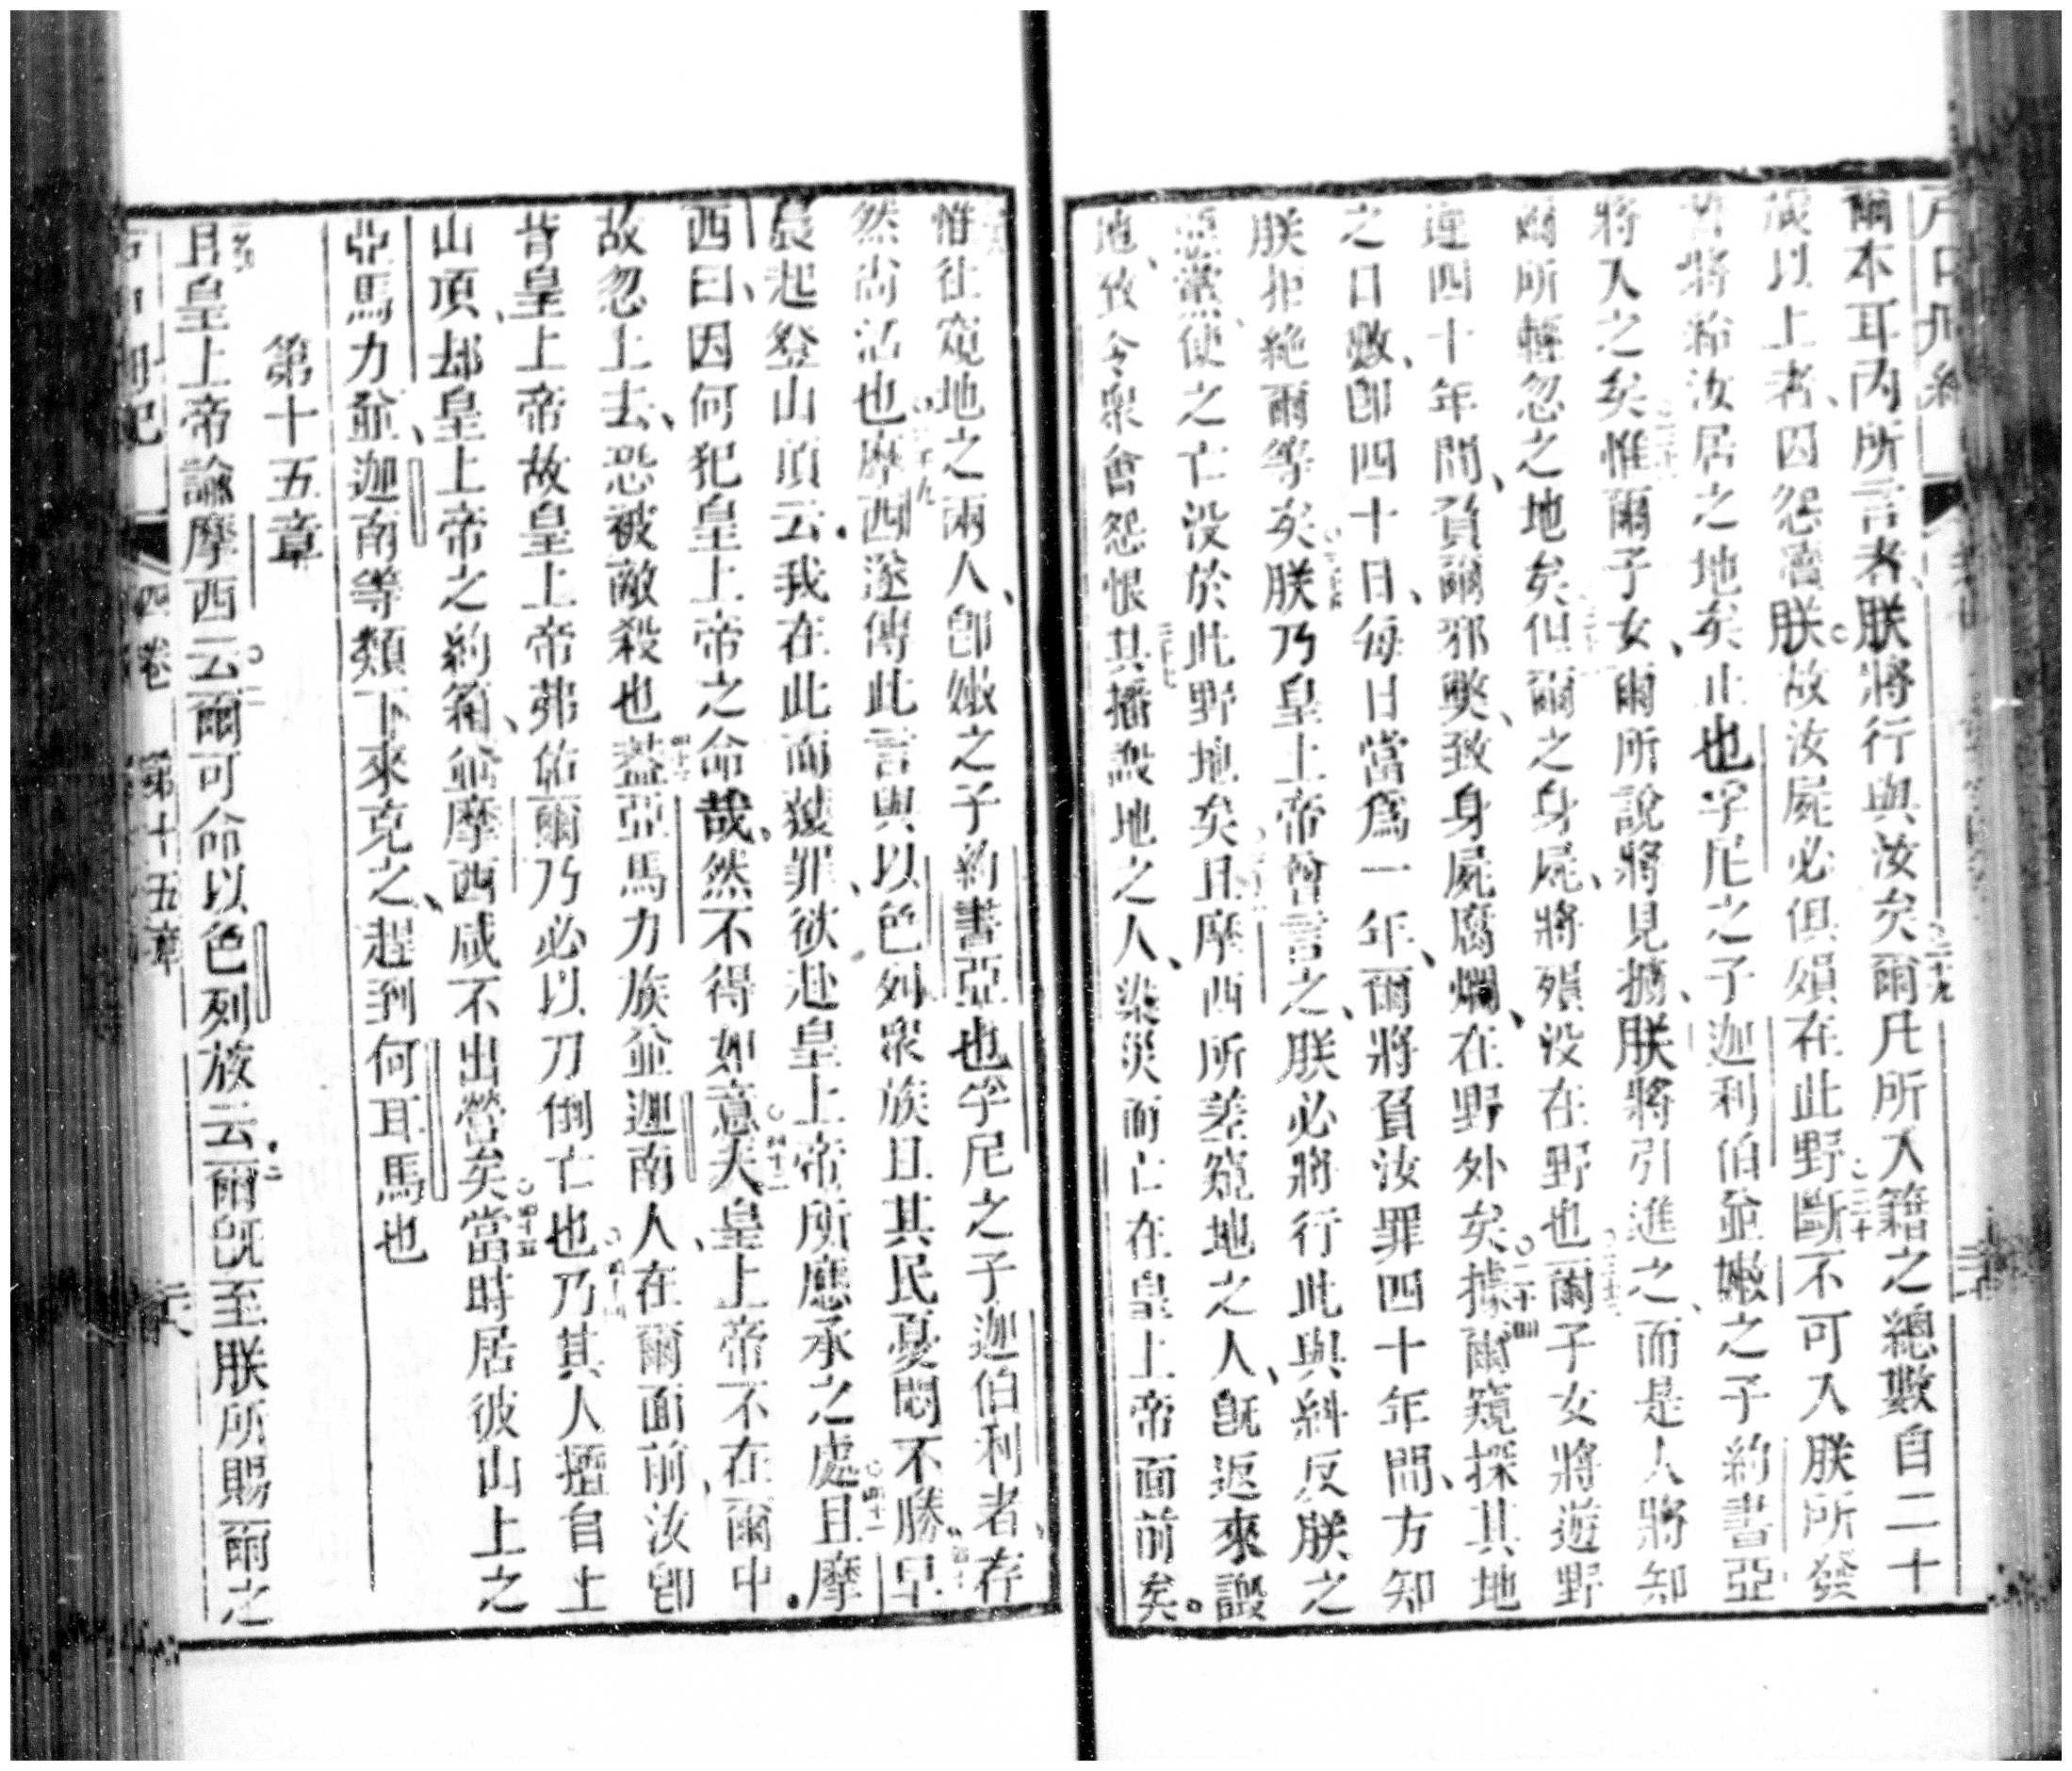 爾本耳內所言者、朕將行與汝矣○二十九爾凡所入籍之總數自二十
歲以上者、因怨瀆朕○故汝屍必俱殞在此野○三十斷不可入朕所發
誓將給汝居之地矣止也孚尼之子迦利伯並嫩之子約書亞
將入之矣○三十一惟爾子女、爾所說將見擄、朕將引進之、而是人將知
爾所輕忽之地矣○三十二但爾之身屍、將殞没在野也○三十三爾子女將遊野
連四十年間、負爾邪褻、致身屍腐爛、在野外矣○三十四據爾窺探其地
之日數、卽四十日、每日當爲一年、爾將負汝罪四十年間、方知
朕拒絶爾等矣○三十五朕乃皇上帝曾言之、朕必將行此與糾反朕之
惡黨、使之亡没於此野地矣○三十六且摩西所差窺地之人、旣返來譭
地、致令衆會怨恨○三十七其播譭地之人、染災而亡在皇上帝面前矣。
惟往窺地之兩人、卽嫩之子約書亞也孚尼之子迦伯利者、存
然尚活也○三十九摩西遂傳此言與以色列衆族且其民憂悶不勝○四十早
晨起登山頂云。我在此而獲罪、欲赴皇上帝所應承之處○四十一且摩
西曰、因何犯皇上帝之命哉、然不得如意○四十二夫皇上帝不在爾中。
故忽上去、恐被敵殺也○四十三蓋亞馬力族並迦南人、在爾面前、汝卽
背皇上帝故皇上帝弗佑爾乃必以刀倒亡也○四十四乃其人擅自上
山頂、却皇上帝之約箱、並摩西咸不出營矣○四十五當時居彼山上之
亞馬力並、迦南等類下來克之、趕到何耳馬也
第十五章
且皇上帝諭摩西云○二爾可命以色列族云。爾旣至朕所賜爾之
四卷 第十五章